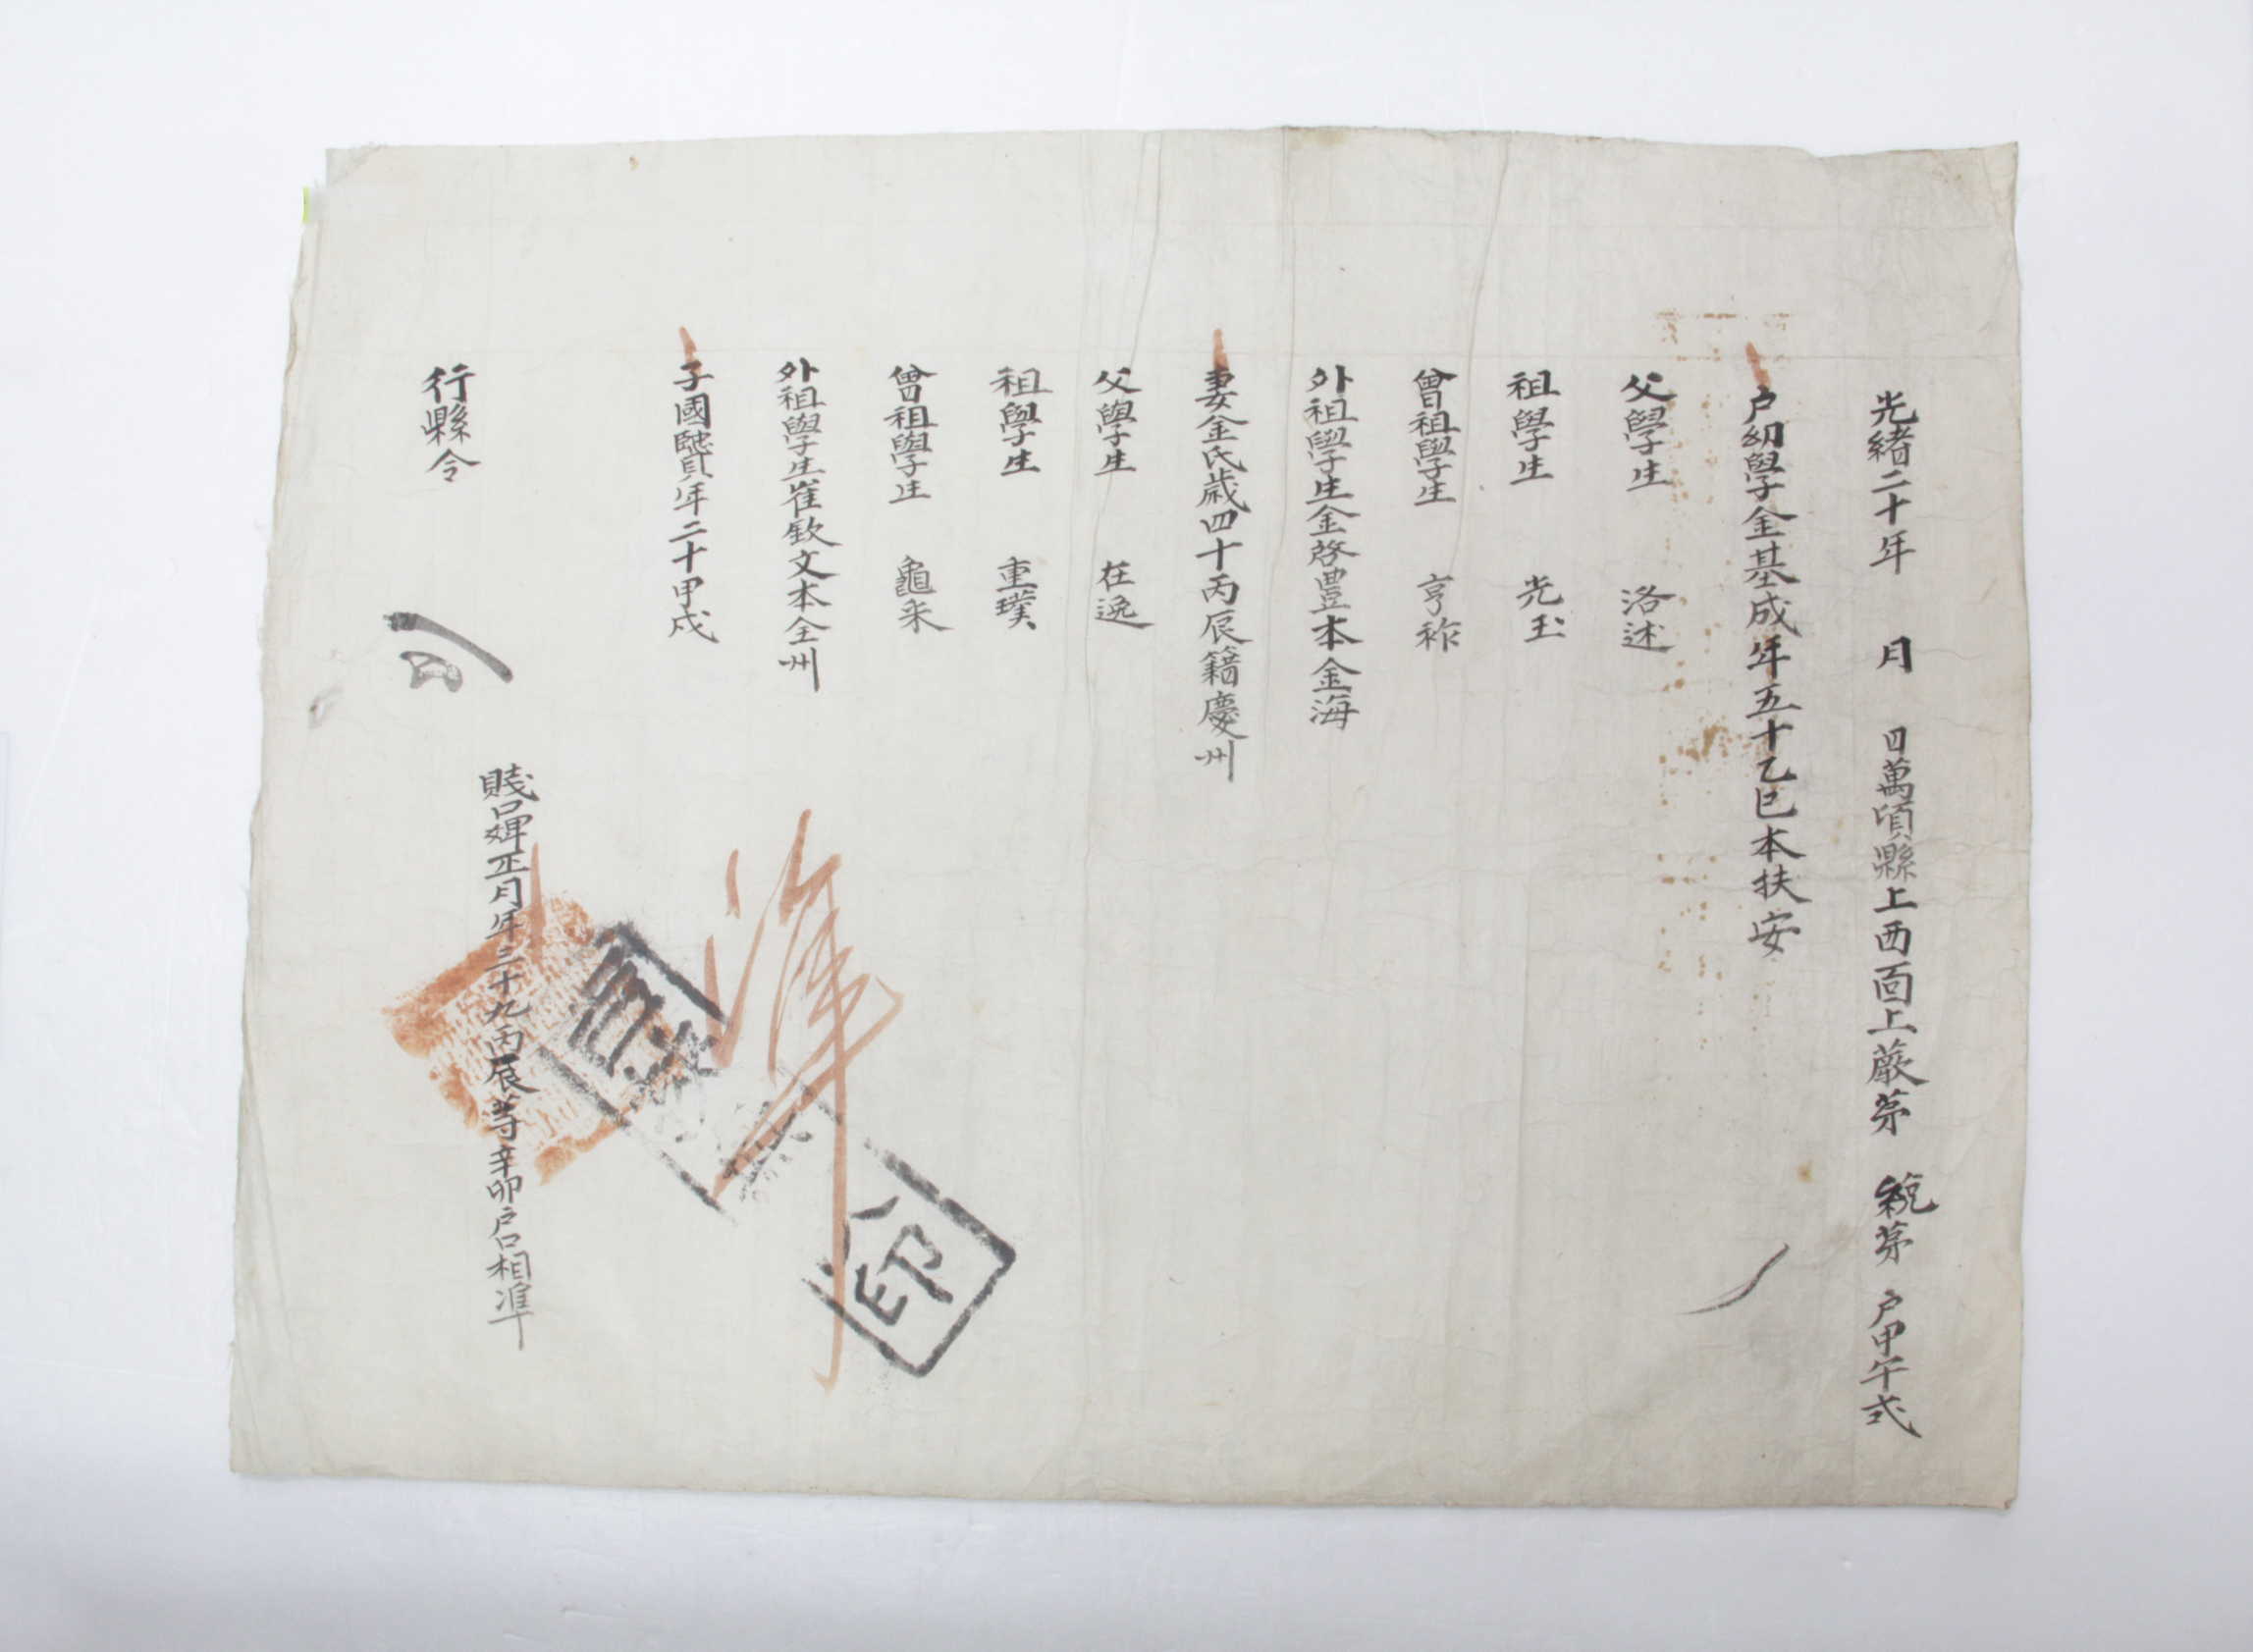 光緖二十年 月 日萬頃縣上西面上蕨第 統第 戶甲午式
戶幼學金基成年五十乙巳本扶安
父學生 洛述
祖學生 光玉
曾祖學生 亨祚
外祖學生金啓豊本金海
妻金氏歲四十丙辰籍慶州
父學生 在逸
祖學生 重璞
曾祖學生 龜采
外祖學生崔欽文本全州
子國贒年二十甲戌
賤口婢正月年三十九丙辰等辛卯戶口相准
行縣令
準
印